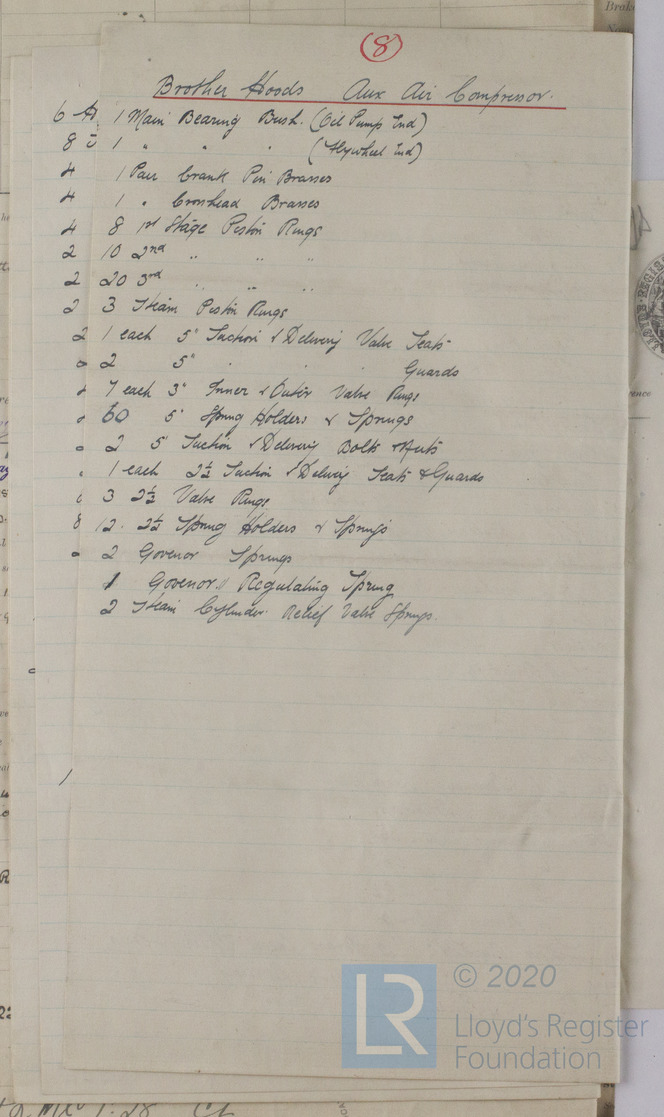 8
Brother Hoods Aux Air Compressor.
1 Main Bearing Bush. (Oil Pump End)
1 " " " (Flywheel End)
1 Pair Crank Pin Brasses
1 " Crosshead Brasses
8 1st Stage Piston Rings
10 2nd " " "
20 3rd " " "
3 Steam Piston Rings
1 each 5" Suction & Delivery Valve Seats
2 5" " " " Guards
7 each 3" Inner & Outer Valve Rings
60 5" Spring Holders & Springs
2 5" Suction & Delivery Bolts & Nuts
1 each 2½ Suction & Delivery Seats & Guards
3 2½ Valve Rings
12. 2½ Spring Holders & Springs
2 Govenor Springs
1 Govenor Regulating Spring
2 Steam Cylinder Relief Valve Springs.
LR
© 2020
Lloyd's Register
Foundation